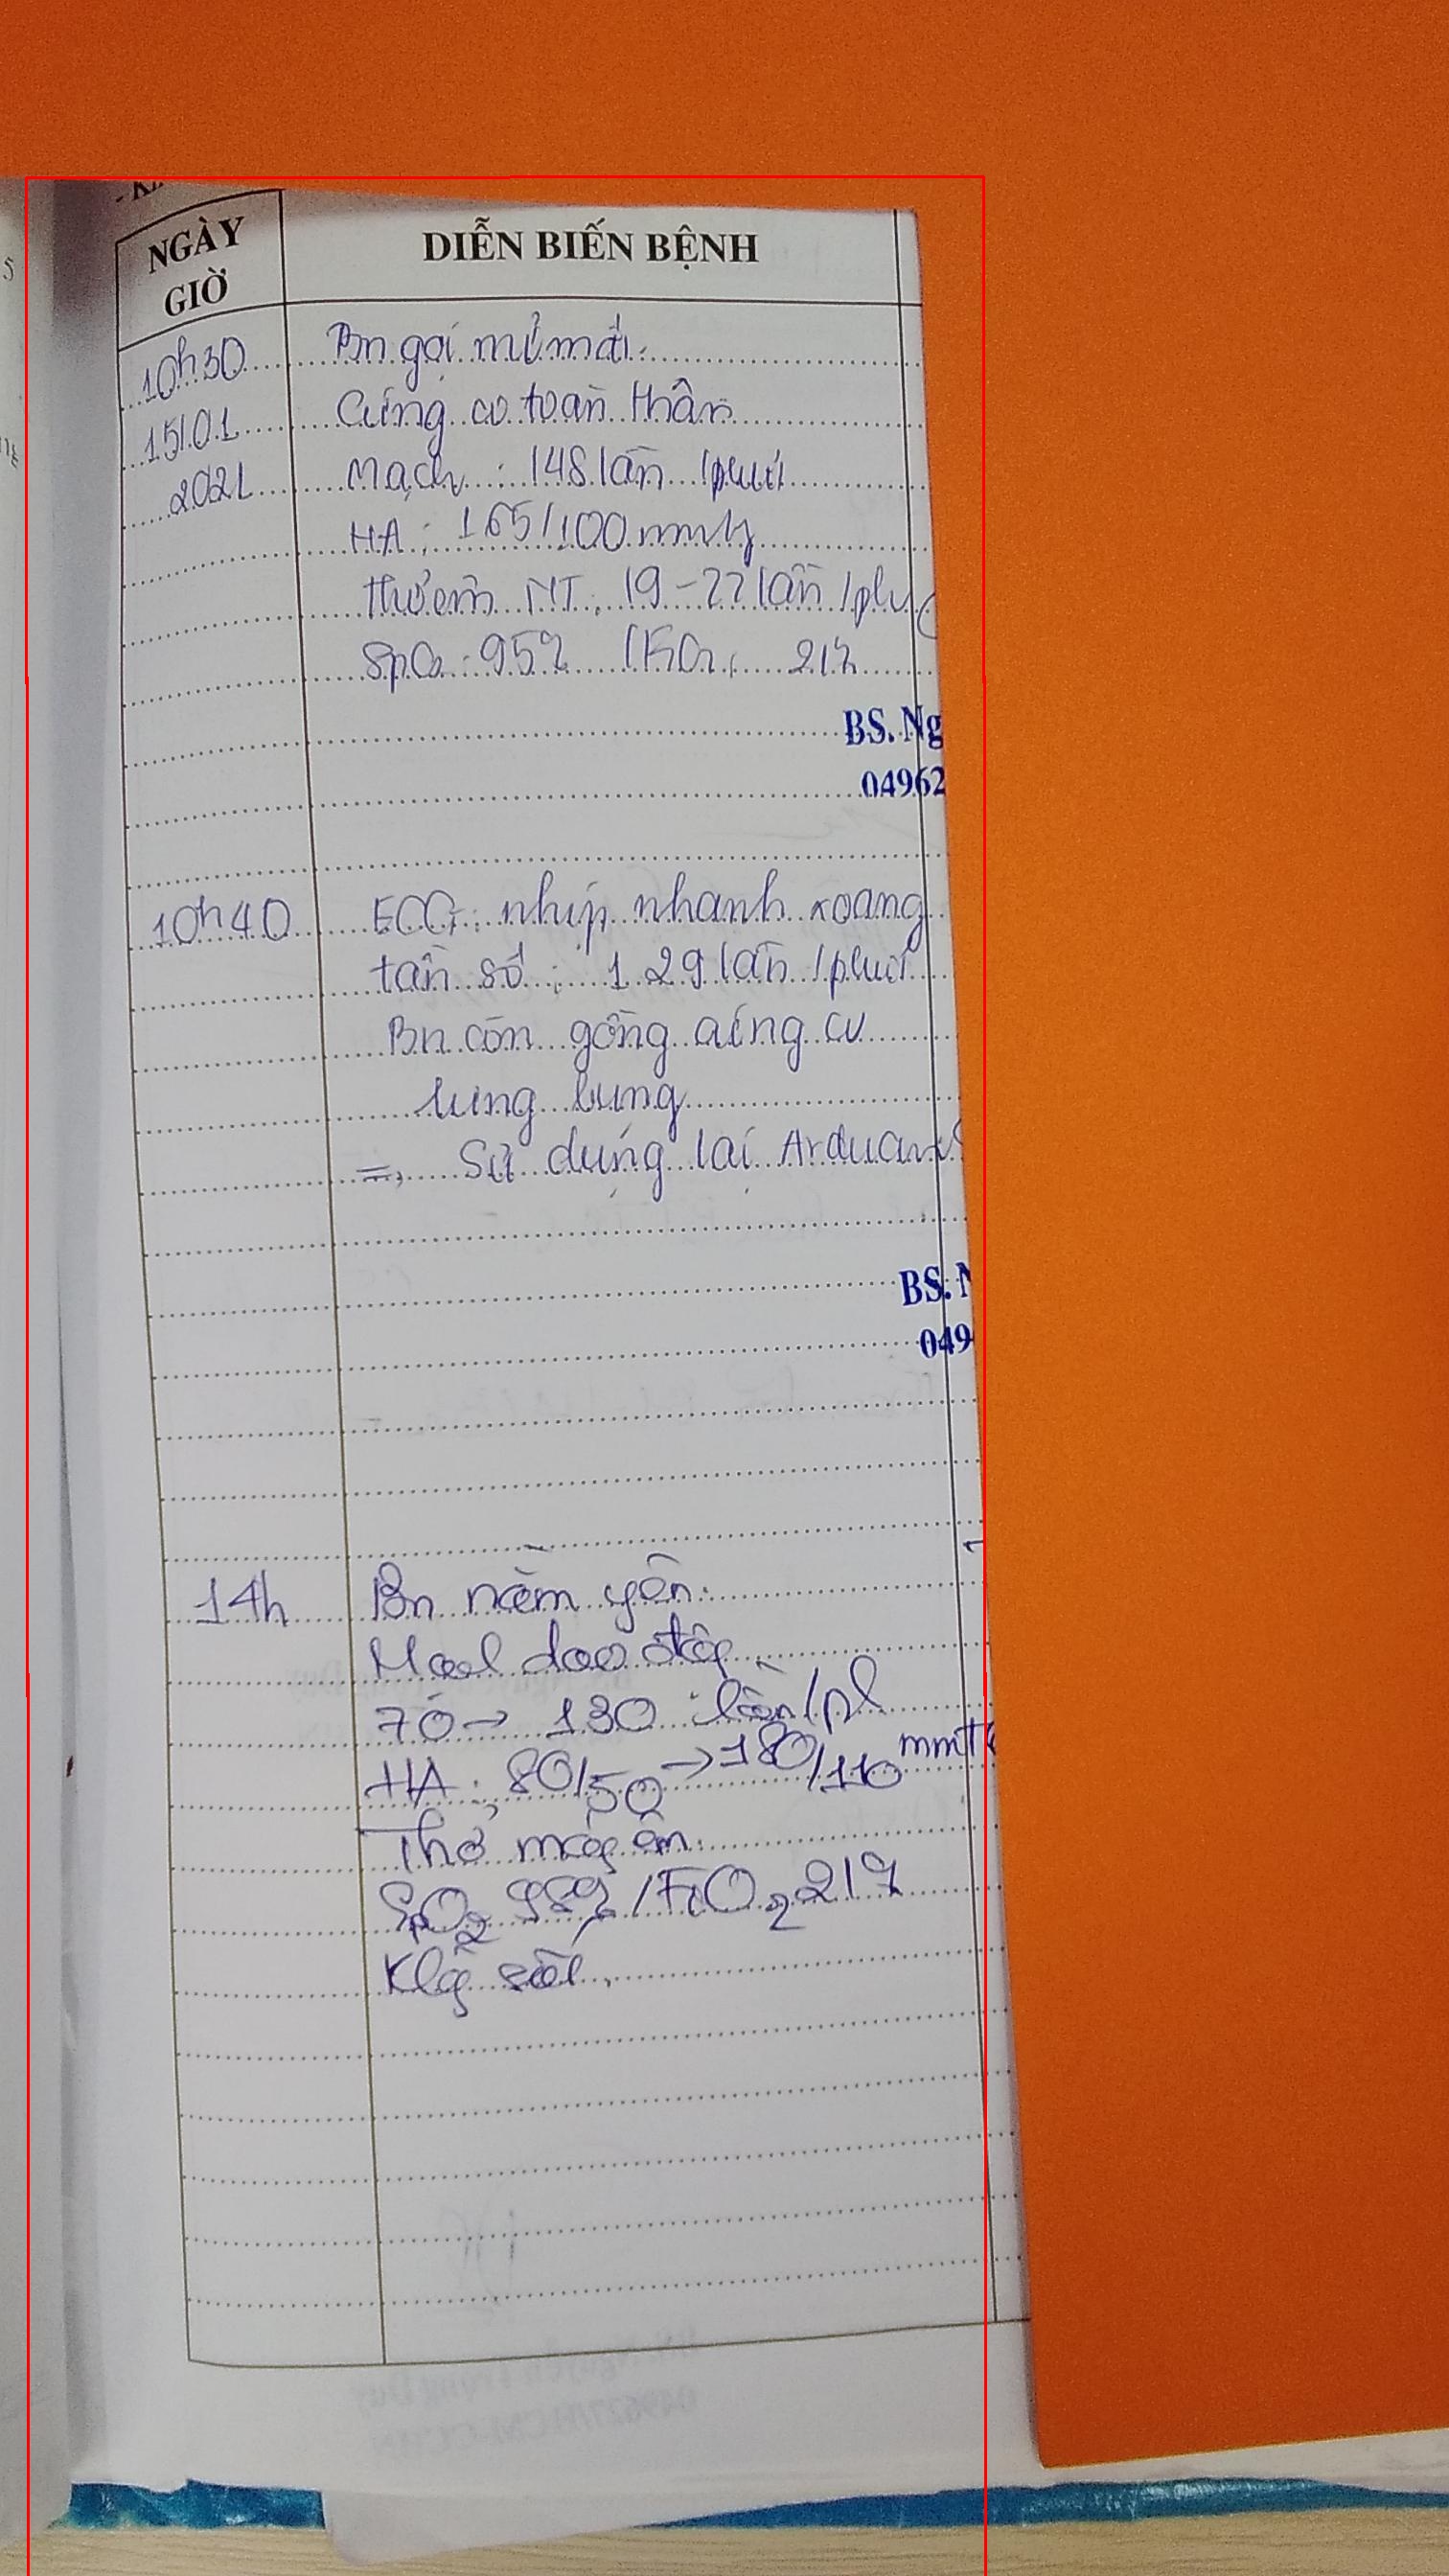 NGÀY GIỜ
DIỄN BIẾN BỆNH
10h30
Bn gọi mở mắt.
15/01
Cứng cơ toàn thân
2021
Mạch : 148 lần /phút
HA : 165/100 mmHg
thở êm NT : 19-22 lần /phú
SpO2 : 95% 21%
BS. Ng
04962
10h40
ECG : nhịp nhanh xoang
tần số : 129 lần /phút
Bn còn gồng cứng cơ
lưng bụng
=> Sử dụng lại Arduan
BS. N
049
14h
Bn nằm yên.
Mạch dao động
70 → 130 lần/ph
HA : 80/50 → 180/110 mmH
Thở máy êm.
SpO2 98% /FiO2 21%
Kg sốt.